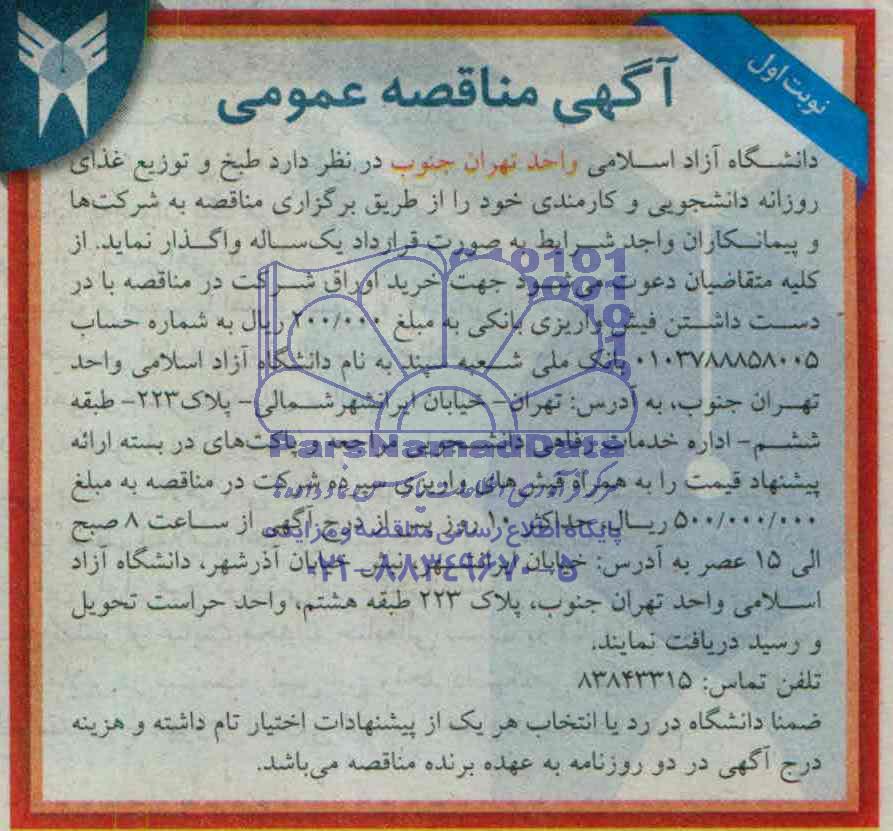 نوبت اول
آگهی مناقصه عمومی
دانشگاه آزاد اسلامی واحد تهران جنوب در نظر دارد طبخ و توزیع غذای
روزانه دانشجویی و کارمندی خود را از طریق برگزاری مناقصه به شرکت‌ها
و پیمانکاران واجد شرایط به صورت قرارداد یک‌ساله واگذار نماید. از
کلیه متقاضیان دعوت می‌شود جهت خرید اوراق شرکت در مناقصه با در
دست داشتن فیش واریزی بانکی به مبلغ ۲۰۰/۰۰۰ ریال به شماره حساب
۰۱۰۳۷۸۸۸۵۸۰۰۵ بانک ملی شعبه سپند به نام دانشگاه آزاد اسلامی واحد
تهران جنوب، به آدرس: تهران- خیابان ایرانشهر شمالی- پلاک۲۲۳- طبقه
ششم- اداره خدمات رفاهی دانشجویی مراجعه و پاکت‌های در بسته ارائه
پیشنهاد قیمت را به همراه فیش‌های واریزی سپرده شرکت در مناقصه به مبلغ
۵۰۰/۰۰۰/۰۰۰ ریال، حداکثر ۱۰ روز پس از درج آگهی از ساعت ۸ صبح
الی ۱۵ عصر به آدرس: خیابان ایرانشهر، نبش خیابان آذرشهر، دانشگاه آزاد
اسلامی واحد تهران جنوب، پلاک ۲۲۳ طبقه هشتم، واحد حراست تحویل
و رسید دریافت نمایند.
تلفن تماس: ۸۳۸۴۳۳۱۵
ضمنا دانشگاه در رد یا انتخاب هر یک از پیشنهادات اختیار تام داشته و هزینه
درج آگهی در دو روزنامه به عهده برنده مناقصه می‌باشد.
ParsNamadData
پایگاه اطلاع رسانی مناقصه و مزایده
۰۲۱-۸۸۳۴۹۶۷۰-۵